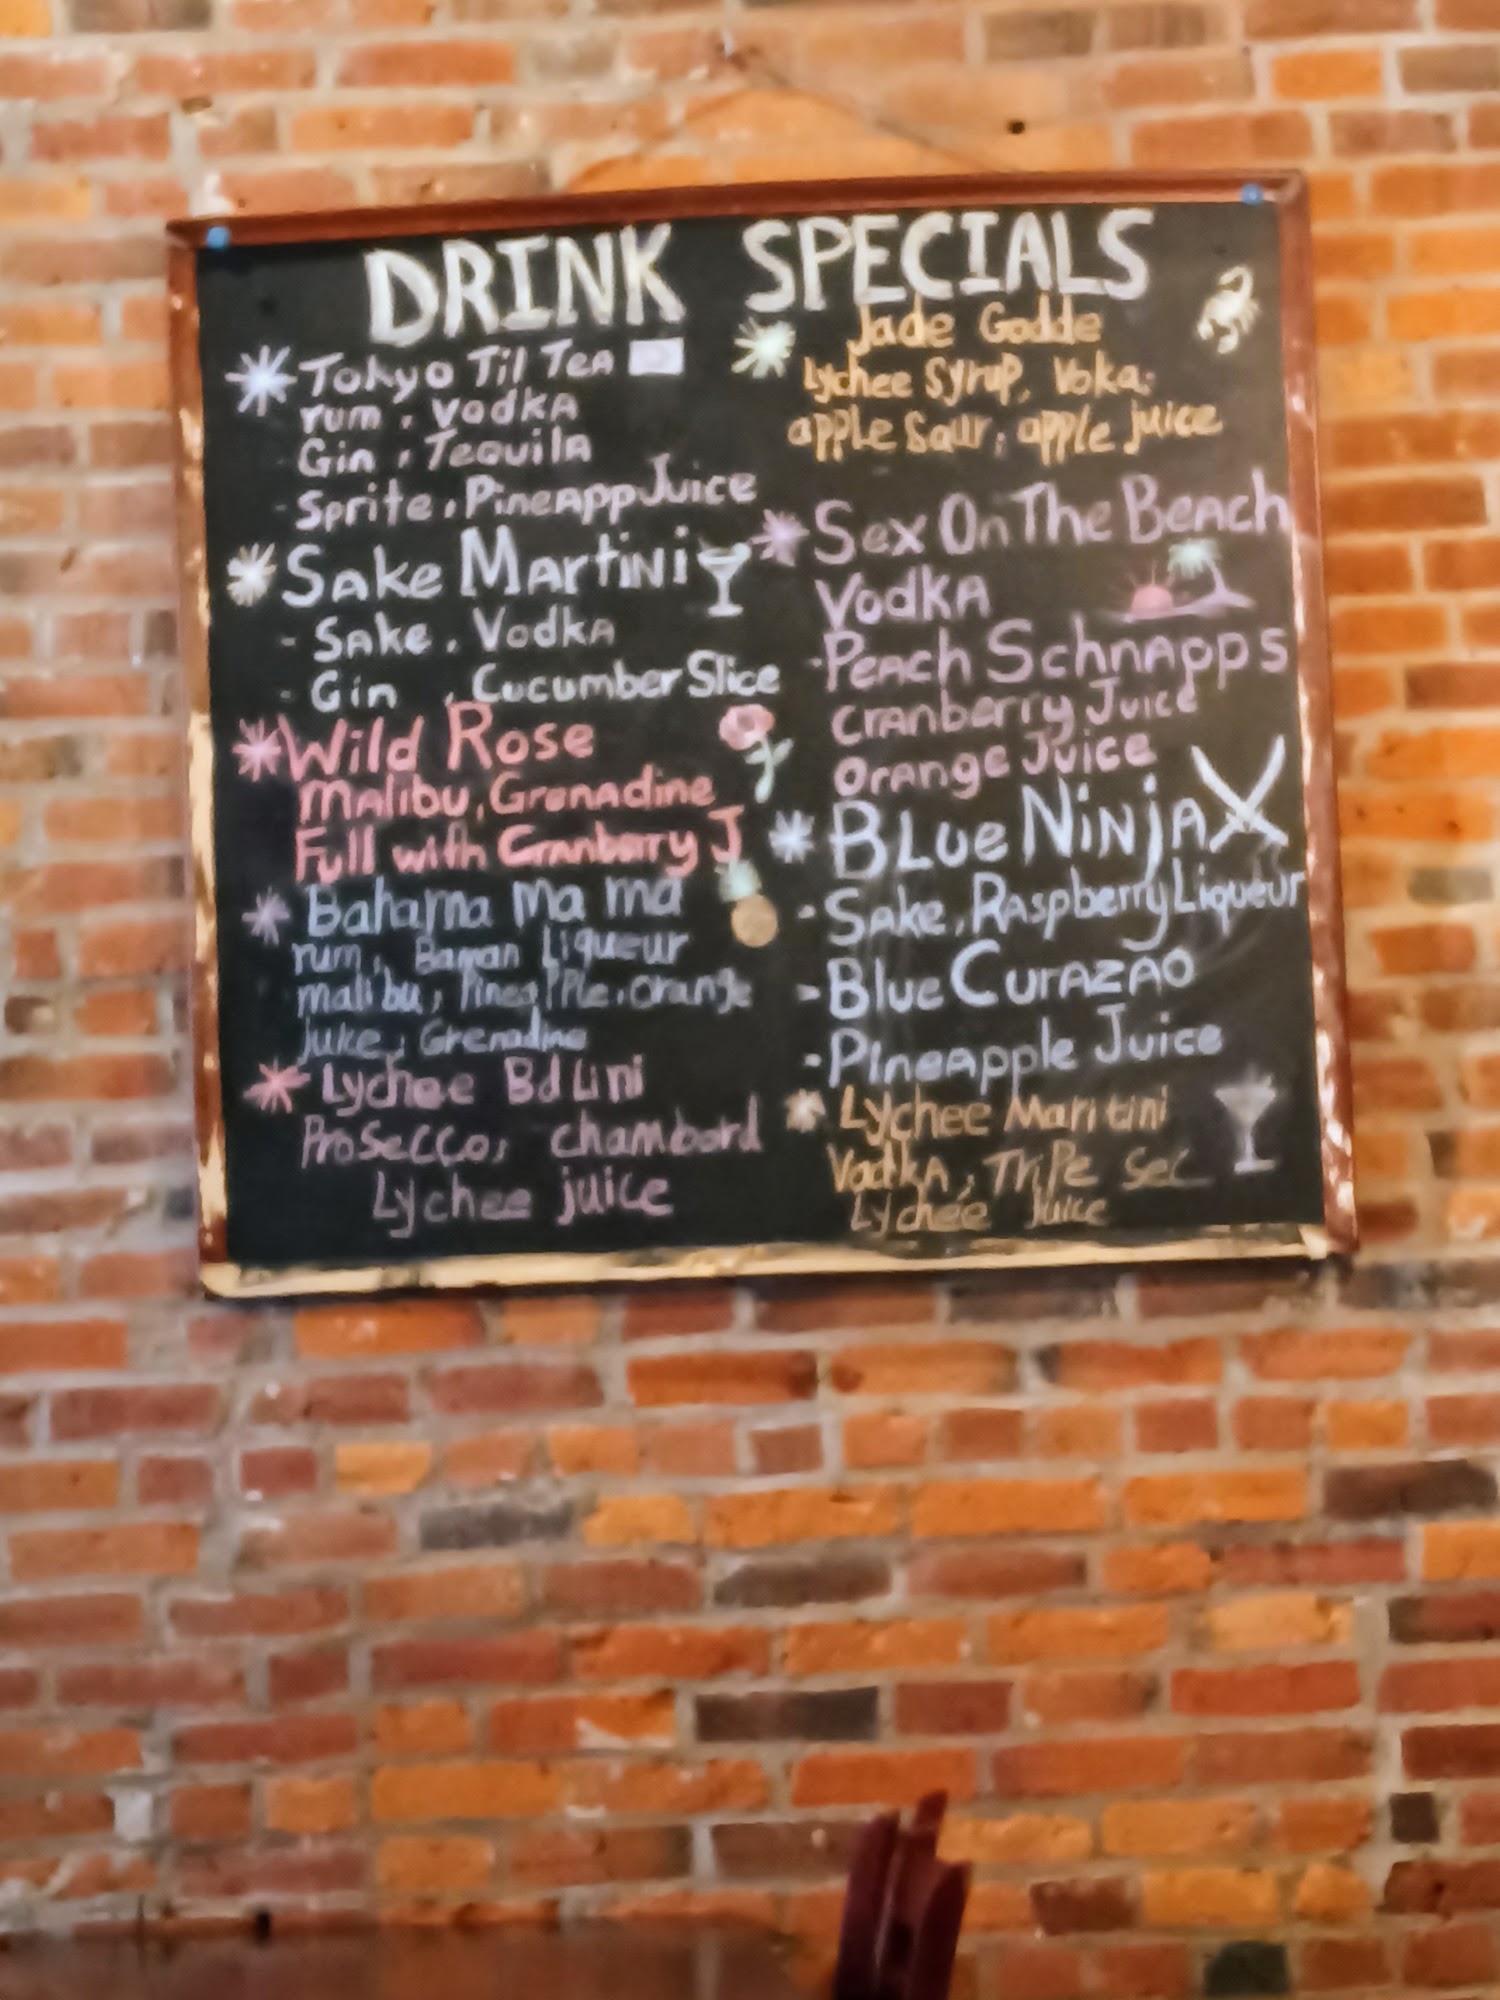 DRINK SPECIALS
Tokyo Til Tea
rum, vodka
Gin, Tequila
- Sprite, PineappJuice
Sake Martini
- Sake, Vodka
- Gin, Cucumber Slice
Wild Rose
Malibu, Grenadine
Full with Cranberry J
Bahama ma ma
rum, Banan Liqueur
malibu, PineaPPle, orange
juice, Grenadine
Lychee Bellini
Prosecco, chambord
Lychee juice
Jade Godde
Lychee Syrup, Voka,
apple Saur, apple juice
Sex On The Beach
Vodka
- Peach Schnapps
Cranberry Juice
Orange Juice
Blue Ninja
- Sake, Raspberry Liqueur
- Blue Curazao
- Pineapple Juice
Lychee Maritini
Vodka, TriPe Sec
Lychee Juice